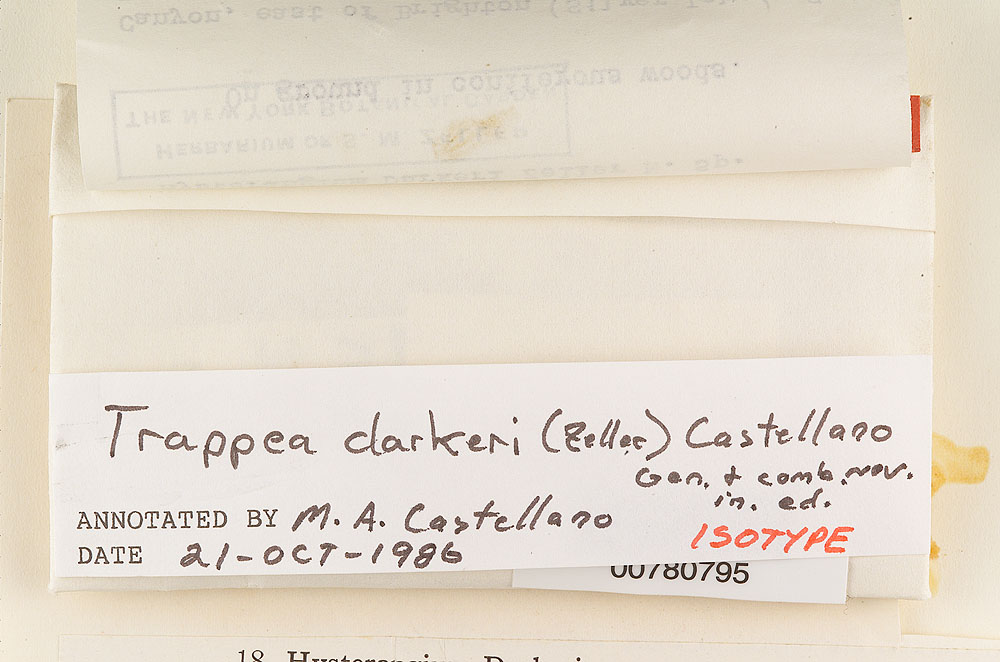 Canyon, east of Brighton (Silver
On ground in coniferous woods
THE NEW YORK BOTANICAL GARDEN
HERBARIUM OF S. M. ZELLER
Darkeri Zeller n. sp.
Trappea darkeri (Zeller) Castellano
Gen. & comb. nov.
in. ed.
ANNOTATED BY M. A. Castellano
DATE 21-OCT-1986
ISOTYPE
00780795
18